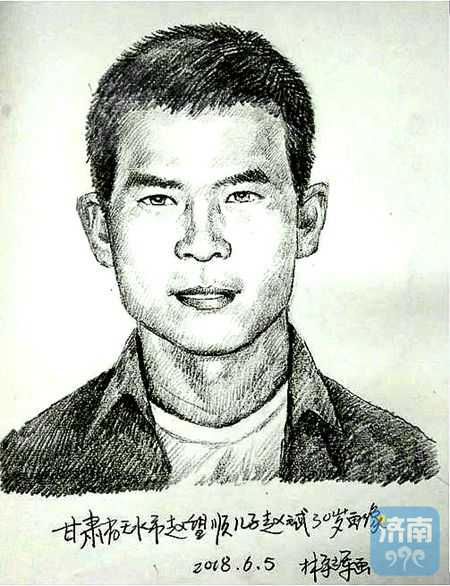 甘肃省天水市赵望顺儿子赵斌30岁画像
2018.6.5 林宇辉画
济南